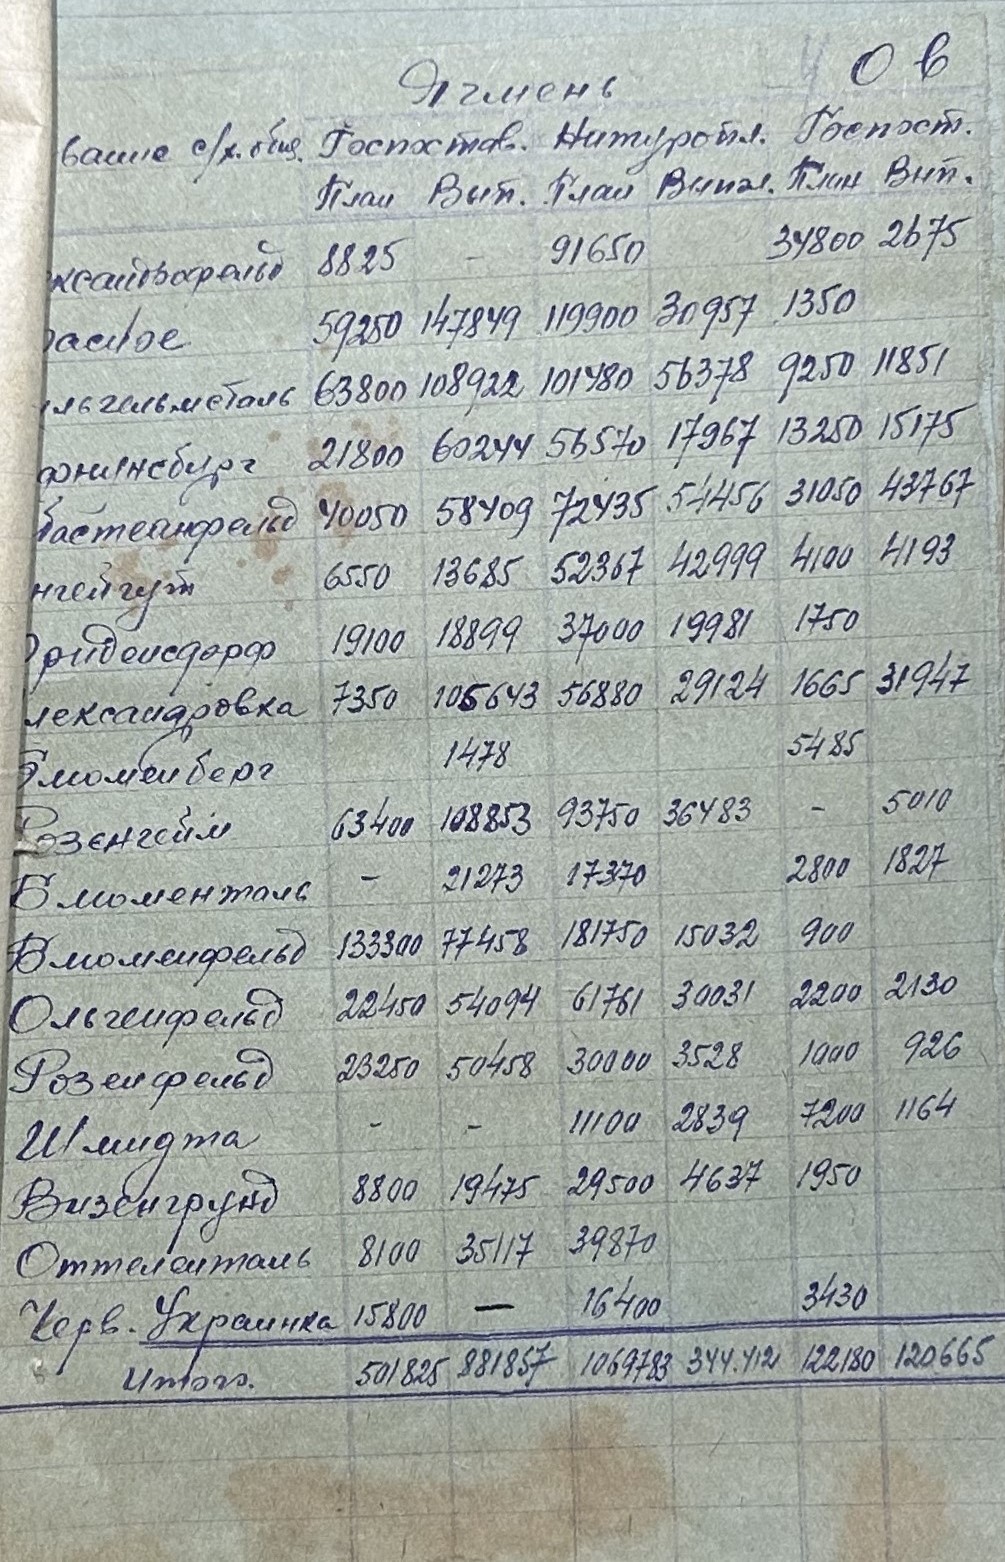 Ячмень Ов
вание с/х. общ. Госпостав. Натуропл. Госпост.
План Вып. План Выпол. План Вып.
ксандрфельд 8825 - 91650 34800 2675
расное 59250 147849 119900 30957 1350
льгельмсталь 63800 108922 101480 56378 9250 11851
21800 60244 56570 17967 13250 15175
бастеинфельд 40050 58409 72435 54456 31050 43767
нгейгут 6550 13685 52367 42999 4100 4193
Фриденсдорф 19100 18899 37000 19981 1750
лександровка 7350 105643 56880 29124 1665 31947
Блюменберг 1478 5485
Розенгейм 63400 108853 93750 36483 - 5010
Блюменталь - 21273 17370 2800 1827
Блюменфельд 133300 77458 181750 15032 900
Ольгенфельд 22450 54094 61761 30031 2200 2130
Розенфельд 23250 50458 30000 3528 1000 926
Шмидта - - 11100 2839 7200 1164
Визенгрунд 8800 19475 29500 4637 1950
Оттеленталь 8100 35117 39870
Черв. Украинка 15800 — 16400 3430
Итого. 501825 881857 1069783 344.412 122180 120665